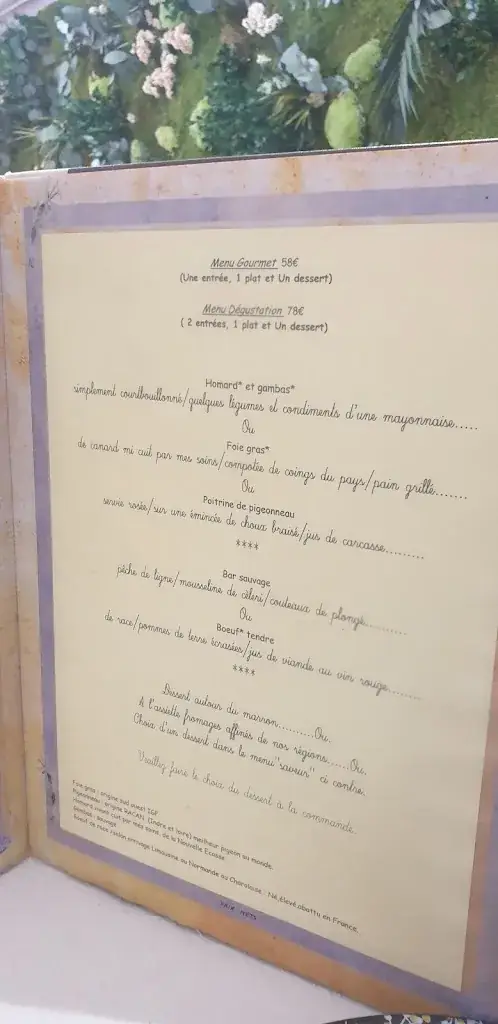 Menu Gourmet 58€
(Une entrée, 1 plat et Un dessert)
Menu Dégustation 78€
( 2 entrées, 1 plat et Un dessert)
Homard* et gambas*
simplement courtbouillonné/quelques légumes et condiments d'une mayonnaise.....
Ou
Foie gras*
de canard mi cuit par mes soins/compotée de coings du pays/pain grillé.......
Ou
Poitrine de pigeonneau
servie rosée/sur une émincée de choux braisé/jus de carcasse.........
****
Bar sauvage
pêche de ligne/mousseline de céleri/couteaux de plongé..........
Ou
Boeuf* tendre
de race/pommes de terre écrasées/jus de viande au vin rouge........
****
Dessert autour du marron..........Ou.
A l'assiette fromages affinés de nos régions......Ou.
Choix d'un dessert dans le menu"saveur" ci contre.
Veuillez faire le choix du dessert à la commande.
Foie gras : origine sud ouest IGP
Pigeonneau : origine RACAN (Indre et loire) meilleur pigeon au monde.
Homard vivant cuit par mes soins, de la Nouvelle Ecosse
Gambas : sauvage
Boeuf de race Limousine ou Normande ou Charolaise : Né,élevé,abattu en France.
PRIX NETS